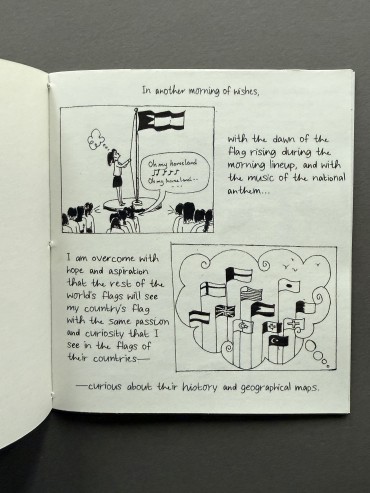 In another morning of wishes,
with the dawn of the
flag rising during the
morning lineup, and with
the music of the national
anthem...
Oh my homeland
♫♪♪♪
Oh my homeland...
...
I am overcome with
hope and aspiration
that the rest of the
world's flags will see
my country's flag
with the same passion
and curiosity that I
see in the flags of
their countries—
—curious about their history and geographical maps.